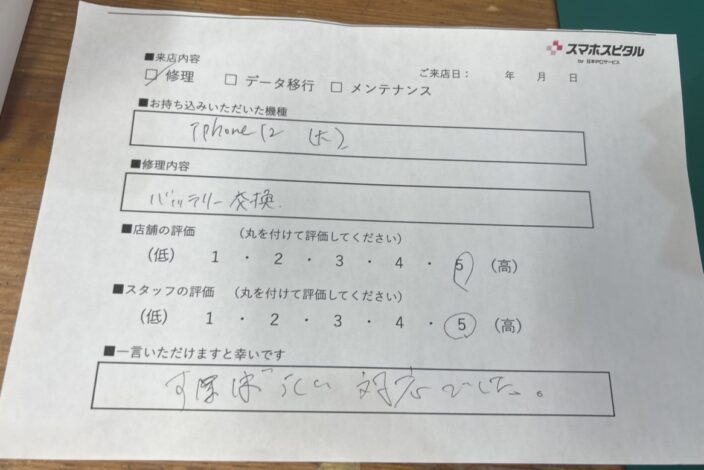 スマホスピタル
by 日本PCサービス
■来店内容
ご来店日： 年 月 日
□ 修理 □ データ移行 □ メンテナンス
■お持ち込みいただいた機種
iphone 12 (大)
■修理内容
バッテリー交換.
■店舗の評価 （丸を付けて評価してください）
（低） 1 ・ 2 ・ 3 ・ 4 ・ 5 （高）
■スタッフの評価 （丸を付けて評価してください）
（低） 1 ・ 2 ・ 3 ・ 4 ・ 5 （高）
■一言いただけますと幸いです
すばらしい 対応でした。